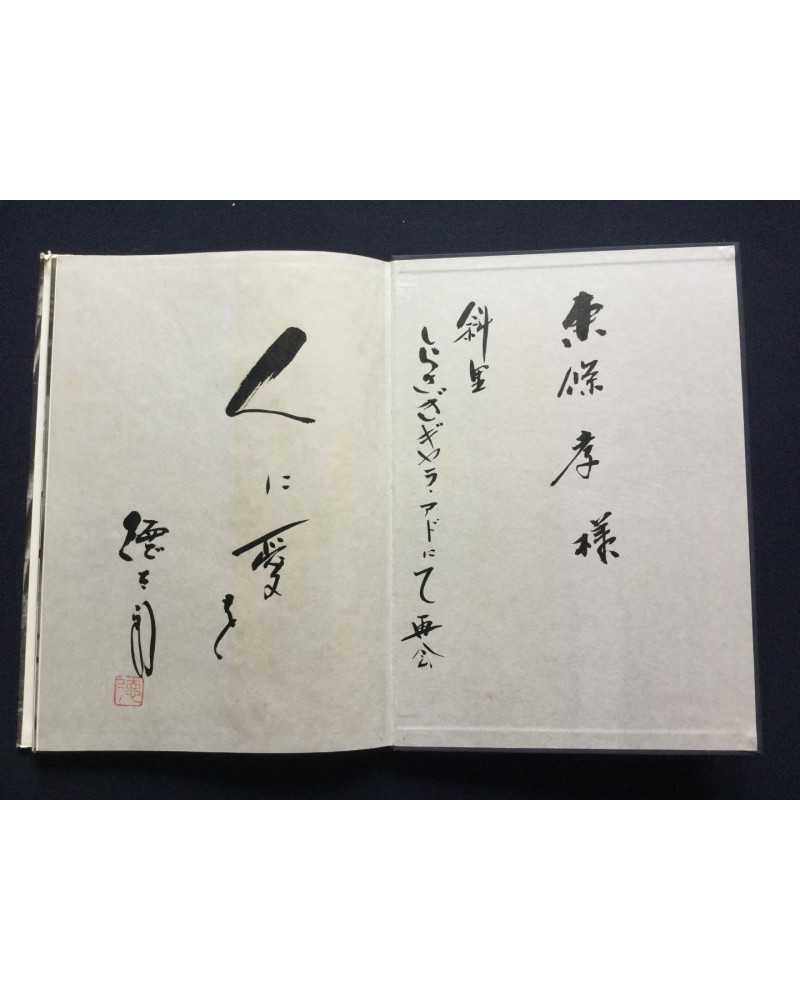 東條孝様
斜里
しらさぎギャラ・アドにて再会
人に愛を
徳太郎